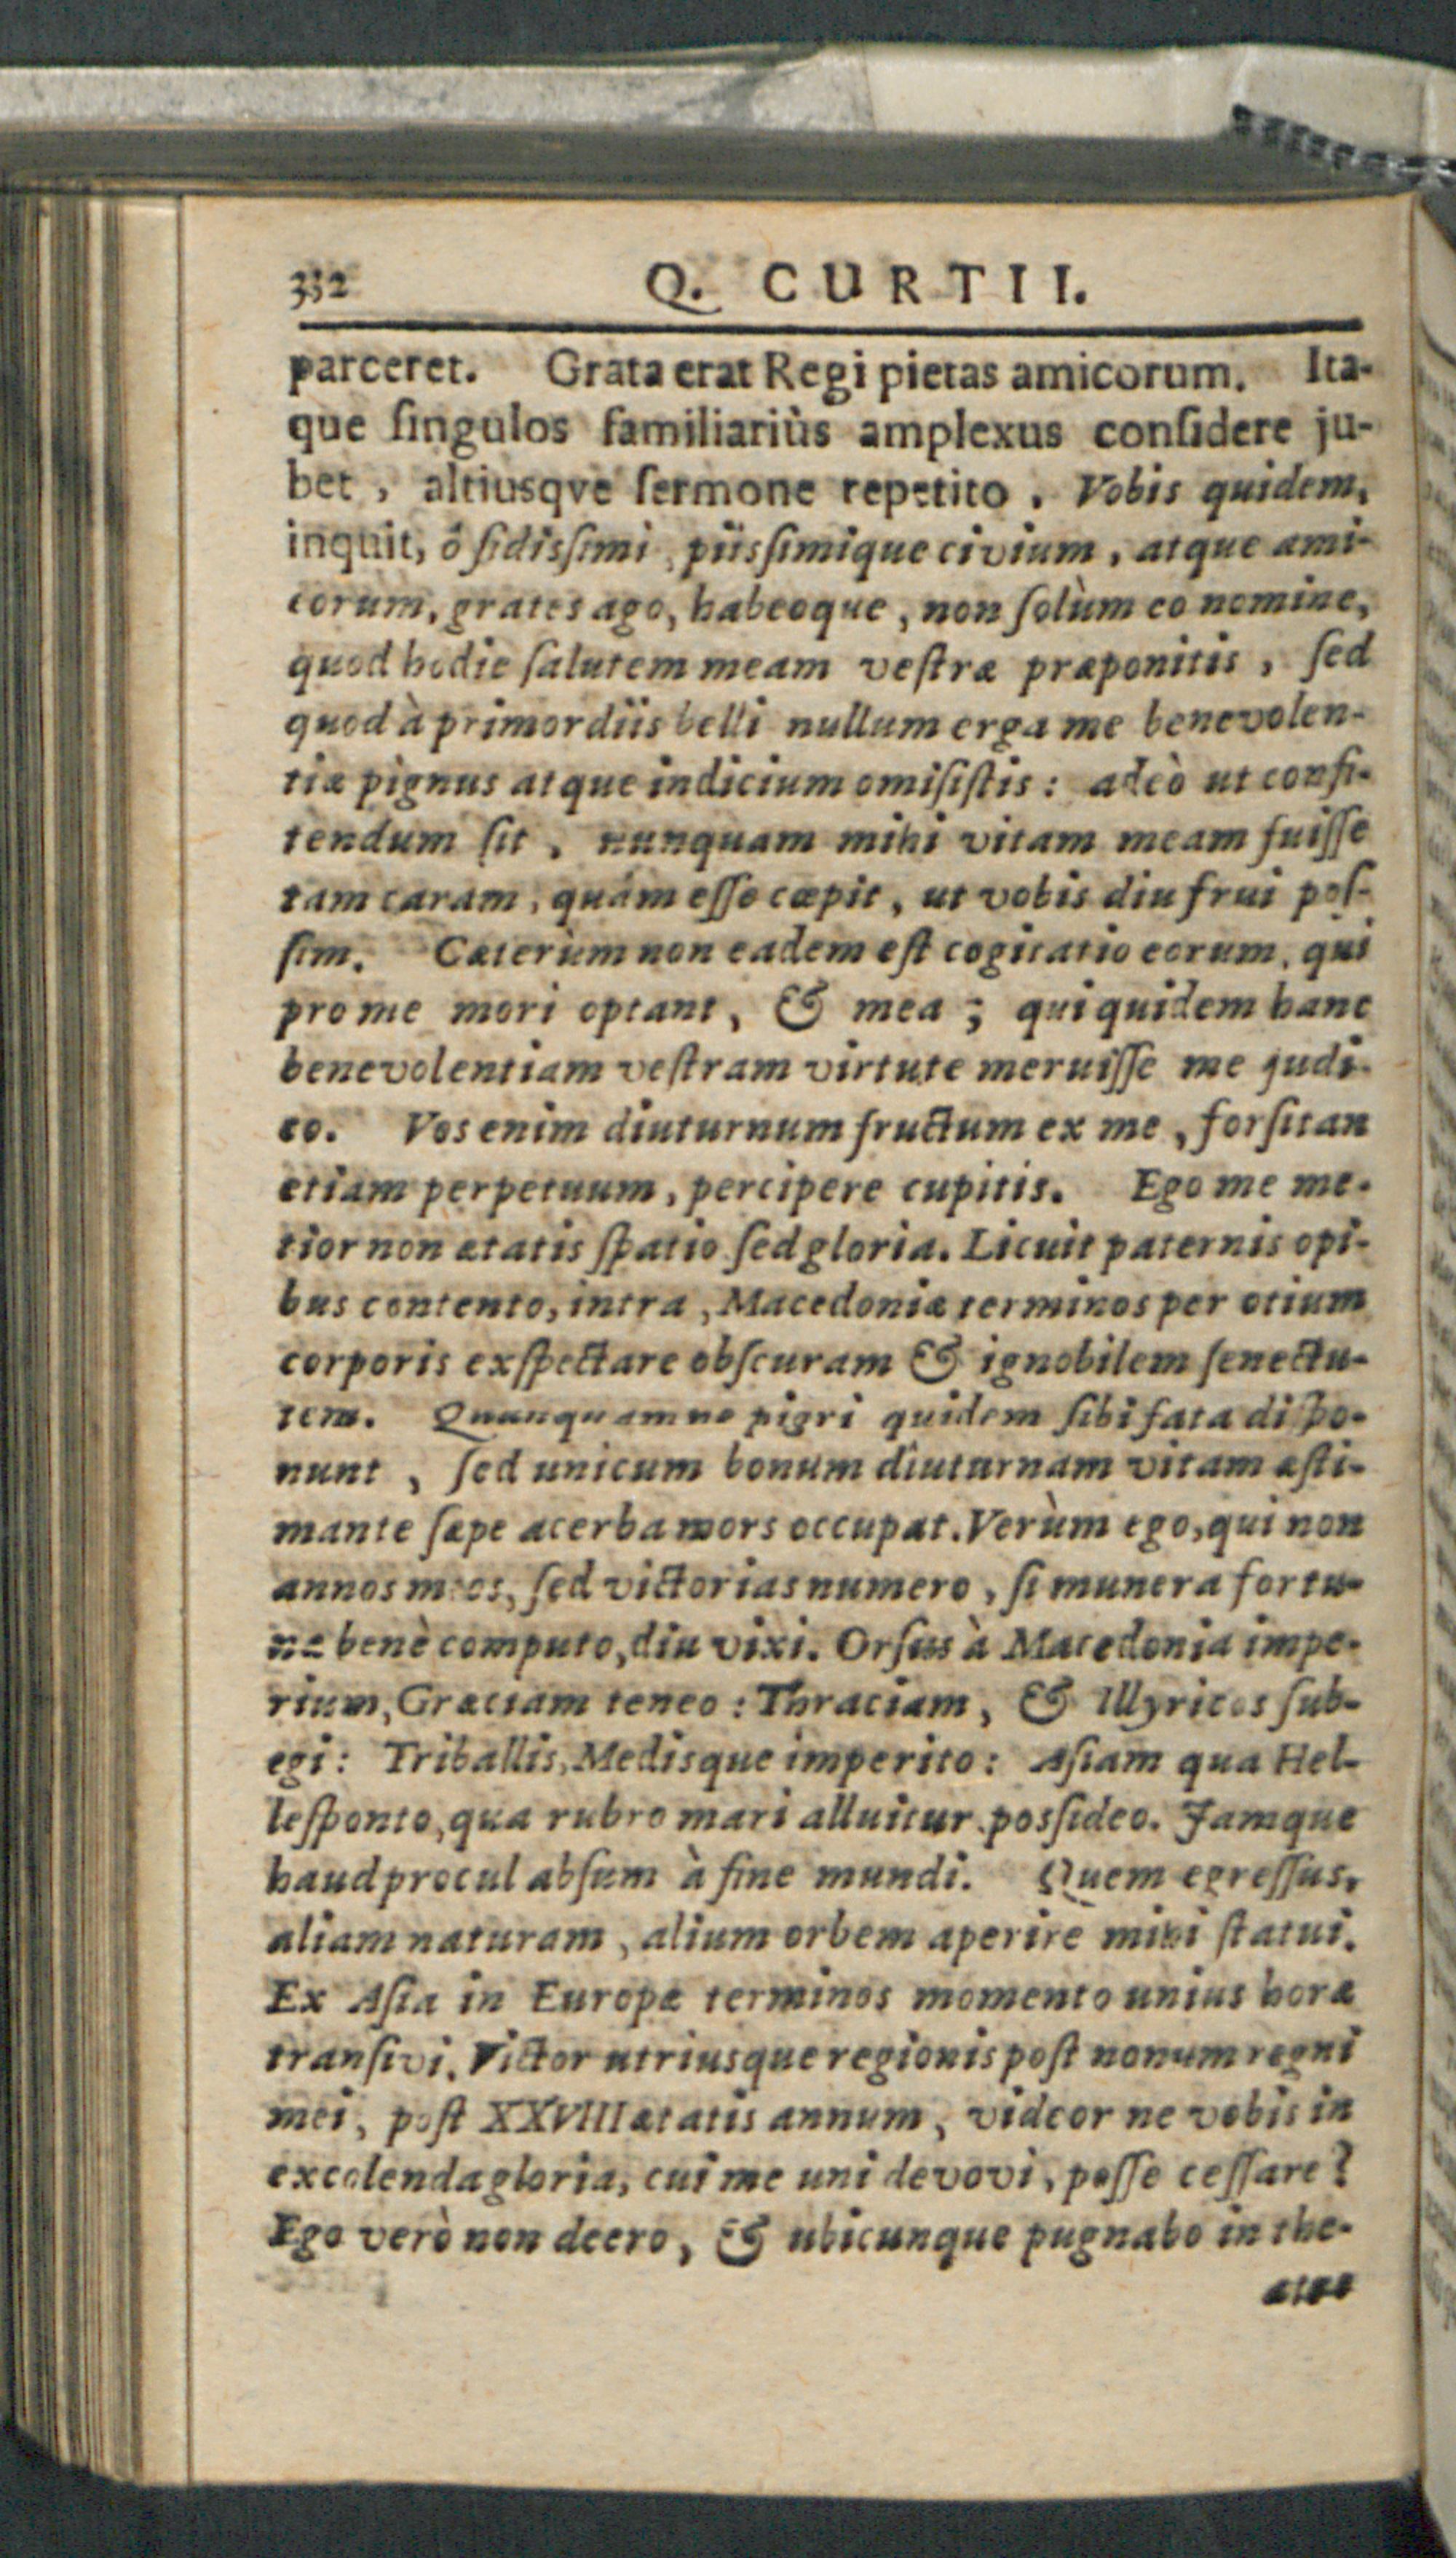 332 Q. CURTII.
parceret. Grata erat Regi pietas amicorum. Ita-
que ſingulos familiariùs amplexus conſidere ju-
bet, altiusqve ſermone repetito. Vobis quidem,
inquit, ô fidisſimi, piisſimique civium, atque ami-
corum, grates ago, habeoque, non ſolùm eo nomine,
quod hodie ſalutem meam veſtræ præponitis, ſed
quod à primordiis belli nullum erga me benevolen-
tiæ pignus atque indicium omiſiſtis: adeò ut confi-
tendum ſit, nunquam mihi vitam meam fuiſſe
tam caram, quàm eſſe cœpit, ut vobis diu frui poſ-
ſim. Cæterùm non eadem eſt cogitatio eorum, qui
pro me mori optant, & mea; qui quidem hanc
benevolentiam veſtram virtute meruiſſe me judi-
co. Vos enim diuturnum fructum ex me, forſitan
etiam perpetuum, percipere cupitis. Ego me me-
tior non ætatis ſpatio ſed gloria. Licuit paternis opi-
bus contento, intra, Macedoniæ terminos per otium
corporis exſpectare obſcuram & ignobilem ſenectu-
tem. Quanquam ne pigri quidem ſibi fata diſpo-
nunt, ſed unicum bonum diuturnam vitam æſti-
mante ſæpe acerba mors occupat. Verùm ego, qui non
annos meos, ſed victorias numero, ſi munera fortu-
næ benè computo, diu vixi. Orſus à Macedonia impe-
rium, Græciam teneo: Thraciam, & Illyricos ſub-
egi: Triballis, Medisque imperito: Aſiam qua Hel-
leſponto, qua rubro mari alluitur, posſideo. Jamque
haud procul abſum à fine mundi. Quem egreſſus,
aliam naturam, alium orbem aperire mihi ſtatui.
Ex Aſia in Europæ terminos momento unius horæ
tranſivi. Victor utriusque regionis poſt nonum regni
mei, poſt XXVIII ætatis annum, videor ne vobis in
excolenda gloria, cui me uni devovi, poſſe ceſſare?
Ego verò non deero, & ubicunque pugnabo in the-
atro